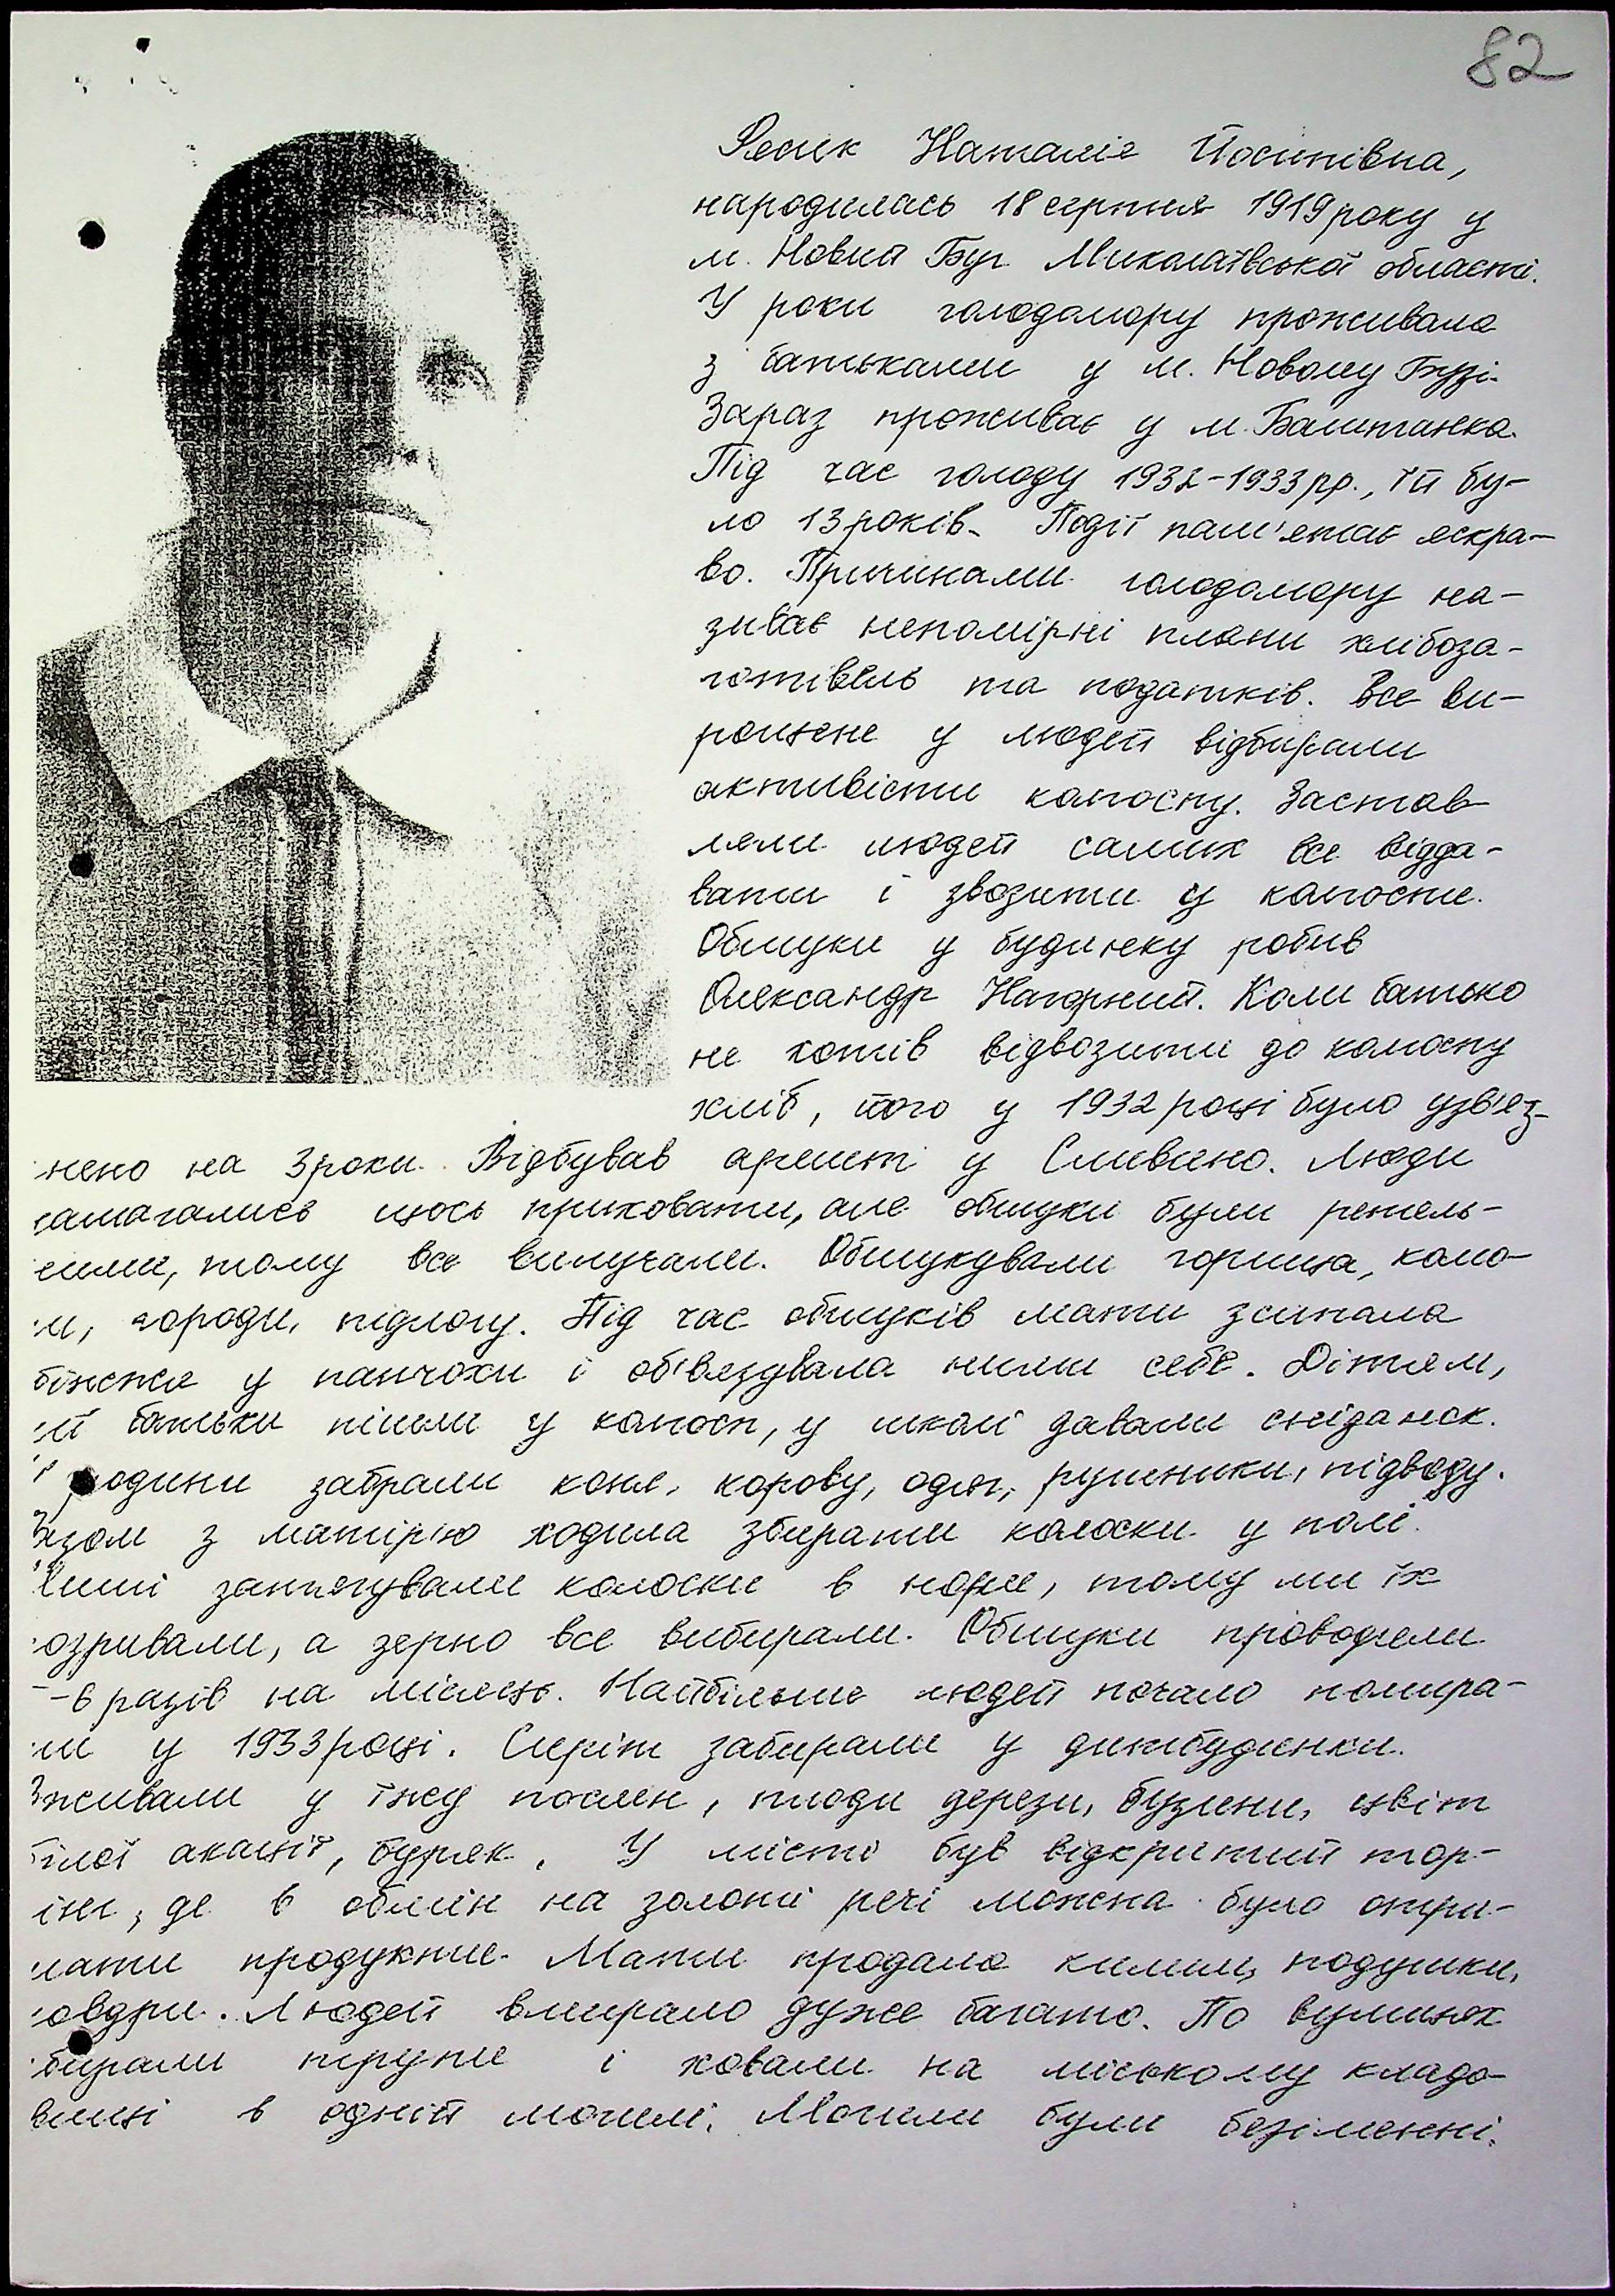 82
Наталія Йосипівна,
народилась 18 серпня 1919 року у
м. Новий Буг Миколаївської області.
У роки голодомору проживала
з батьками у м. Новому Бузі.
Зараз проживає у м. Баштанка.
Під час голоду 1932-1933 рр., їй бу-
ло 13 років. Події пам'ятає яскра-
во. Причинами голодомору на-
зиває непомірні плани хлібоза-
готівель та податків. Все ви-
рощене у людей відбирали
активісти колгоспу. Застав-
ляли людей самих все відда-
вати і звозити у колгоспи.
Обшуки у будинку робив
Олександр Нагорний. Коли батько
не хотів відвозити до колгоспу
хліб, його у 1932 році було ув'яз-
нено на 3 роки. Відбував арешт у Сливино. Люди
намагались щось приховати, але обшуки були ретель-
ними, тому все вилучали. Обшукували горища, комо-
ри, городи, підлогу. Під час обшуків мати зсипала
збіжжя у панчохи і обв'язувала ними себе. Дітям,
чиї батьки пішли у колгосп, у школі давали сніданок.
родини забрали коня, корову, одяг, рушники, підводу.
Разом з матір'ю ходила збирати колоски у полі.
Миші затягували колоски в нори, тому ми їх
розривали, а зерно все вибирали. Обшуки проводили
-6 разів на місяць. Найбільше людей почало помира-
ти у 1933 році. Сиріт забирали у дитбудинки.
Вживали у їжу паслен, плоди дерези, бузини, цвіт
білої акації, буряк. У місті був відкритий тор-
гсін, де в обмін на золоті речі можна було отри-
мати продукти. Мати продала килими, подушки,
ковдри. Людей вмирало дуже багато. По вулицях
збирали трупи і ховали на міському кладо-
вищі в одній могилі. Могили були безіменні.